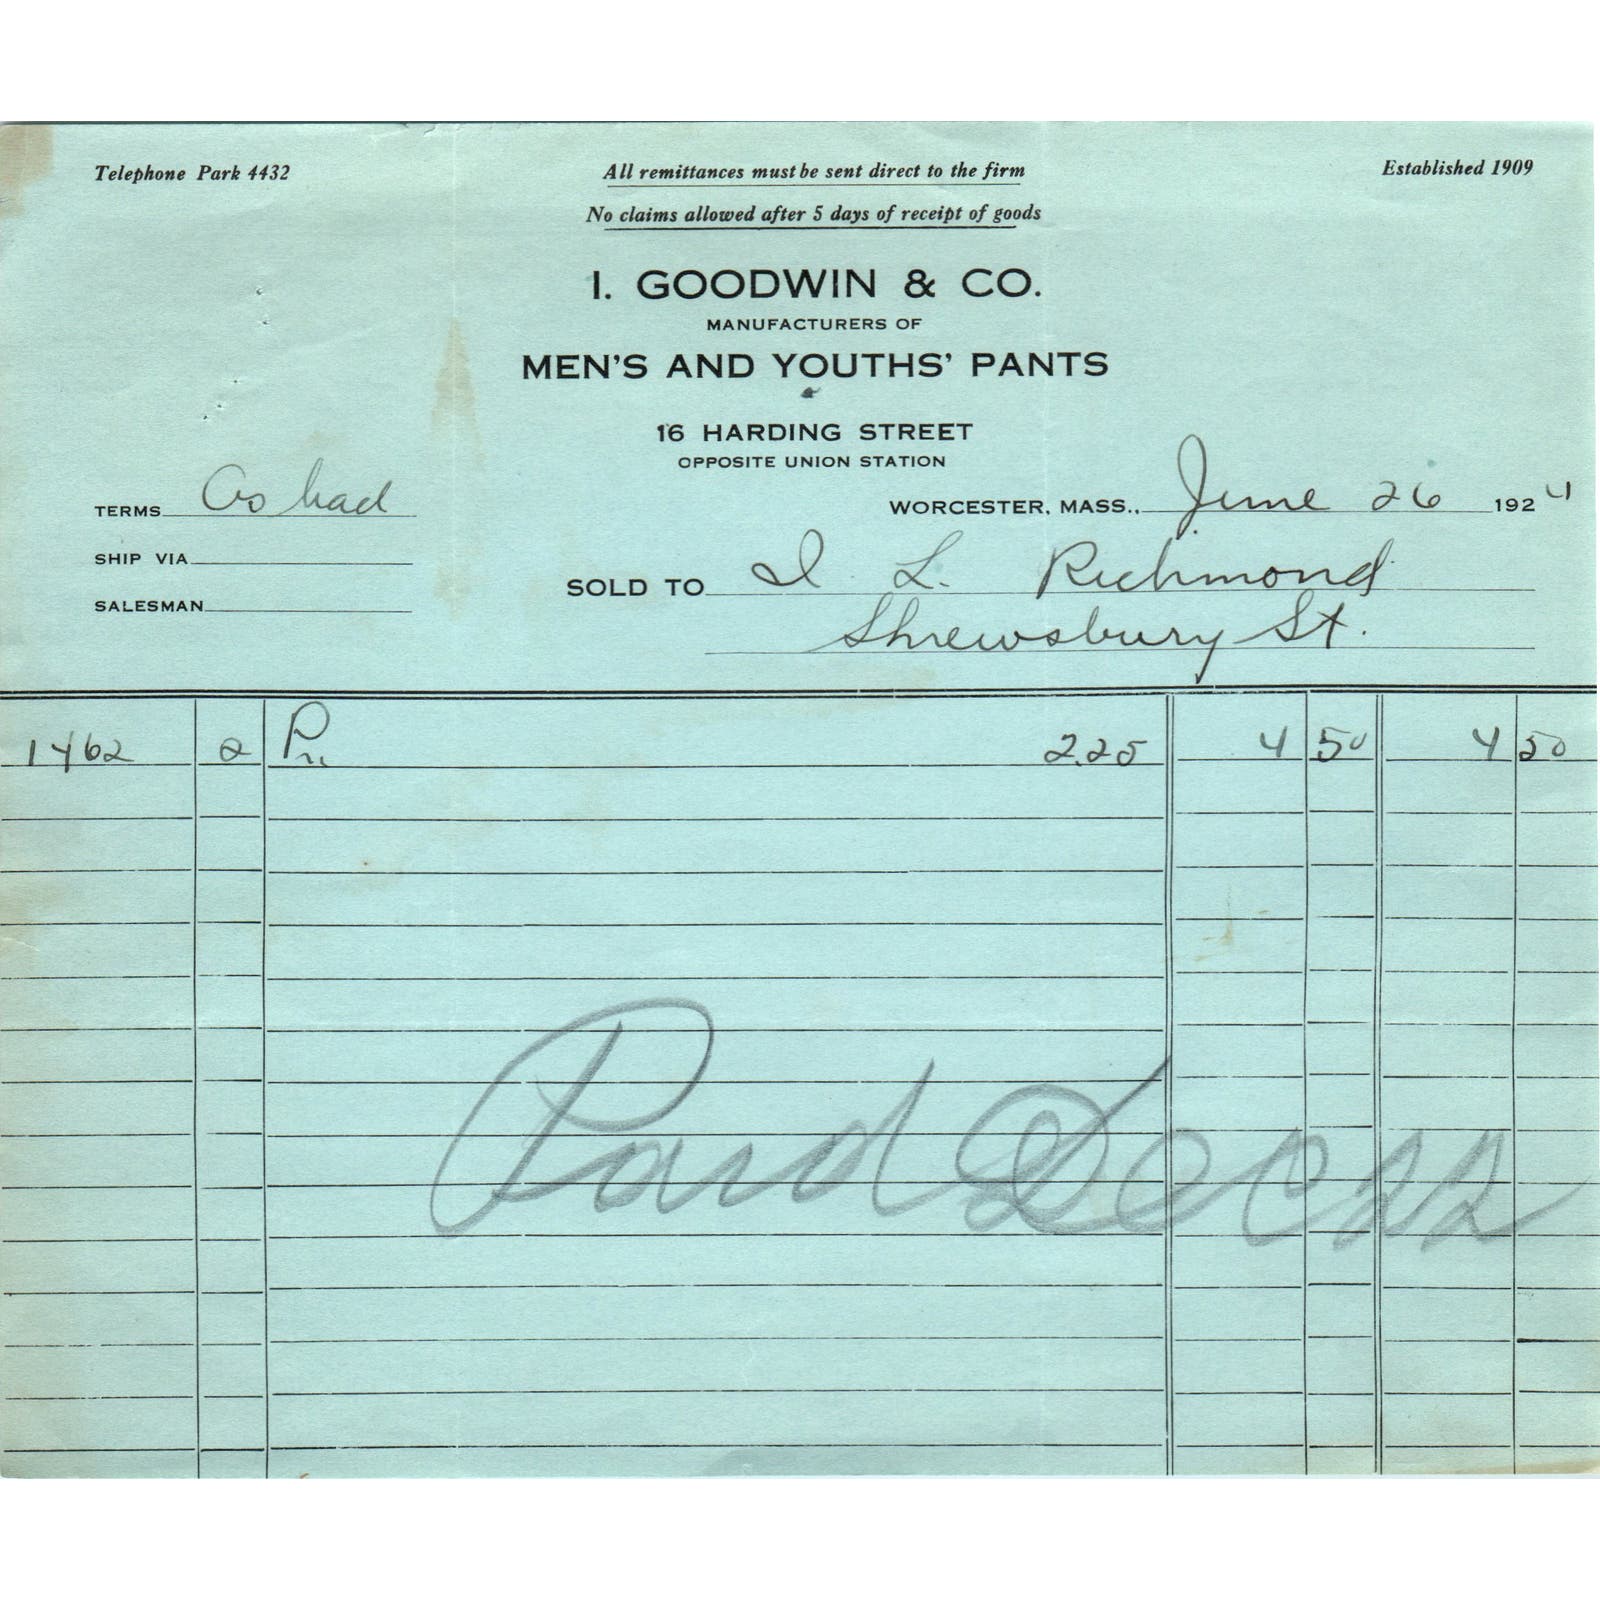 Telephone Park 4432
All remittances must be sent direct to the firm
Established 1909
No claims allowed after 5 days of receipt of goods
I. GOODWIN & CO.
MANUFACTURERS OF
MEN'S AND YOUTHS' PANTS
16 HARDING STREET
OPPOSITE UNION STATION
TERMS
WORCESTER, MASS., June 26 1924
SHIP VIA
SOLD TO I L. Richmond
SALESMAN
Shrewsbury St.
1462 2 Pr. 2.25 4 50 4 50
Paid